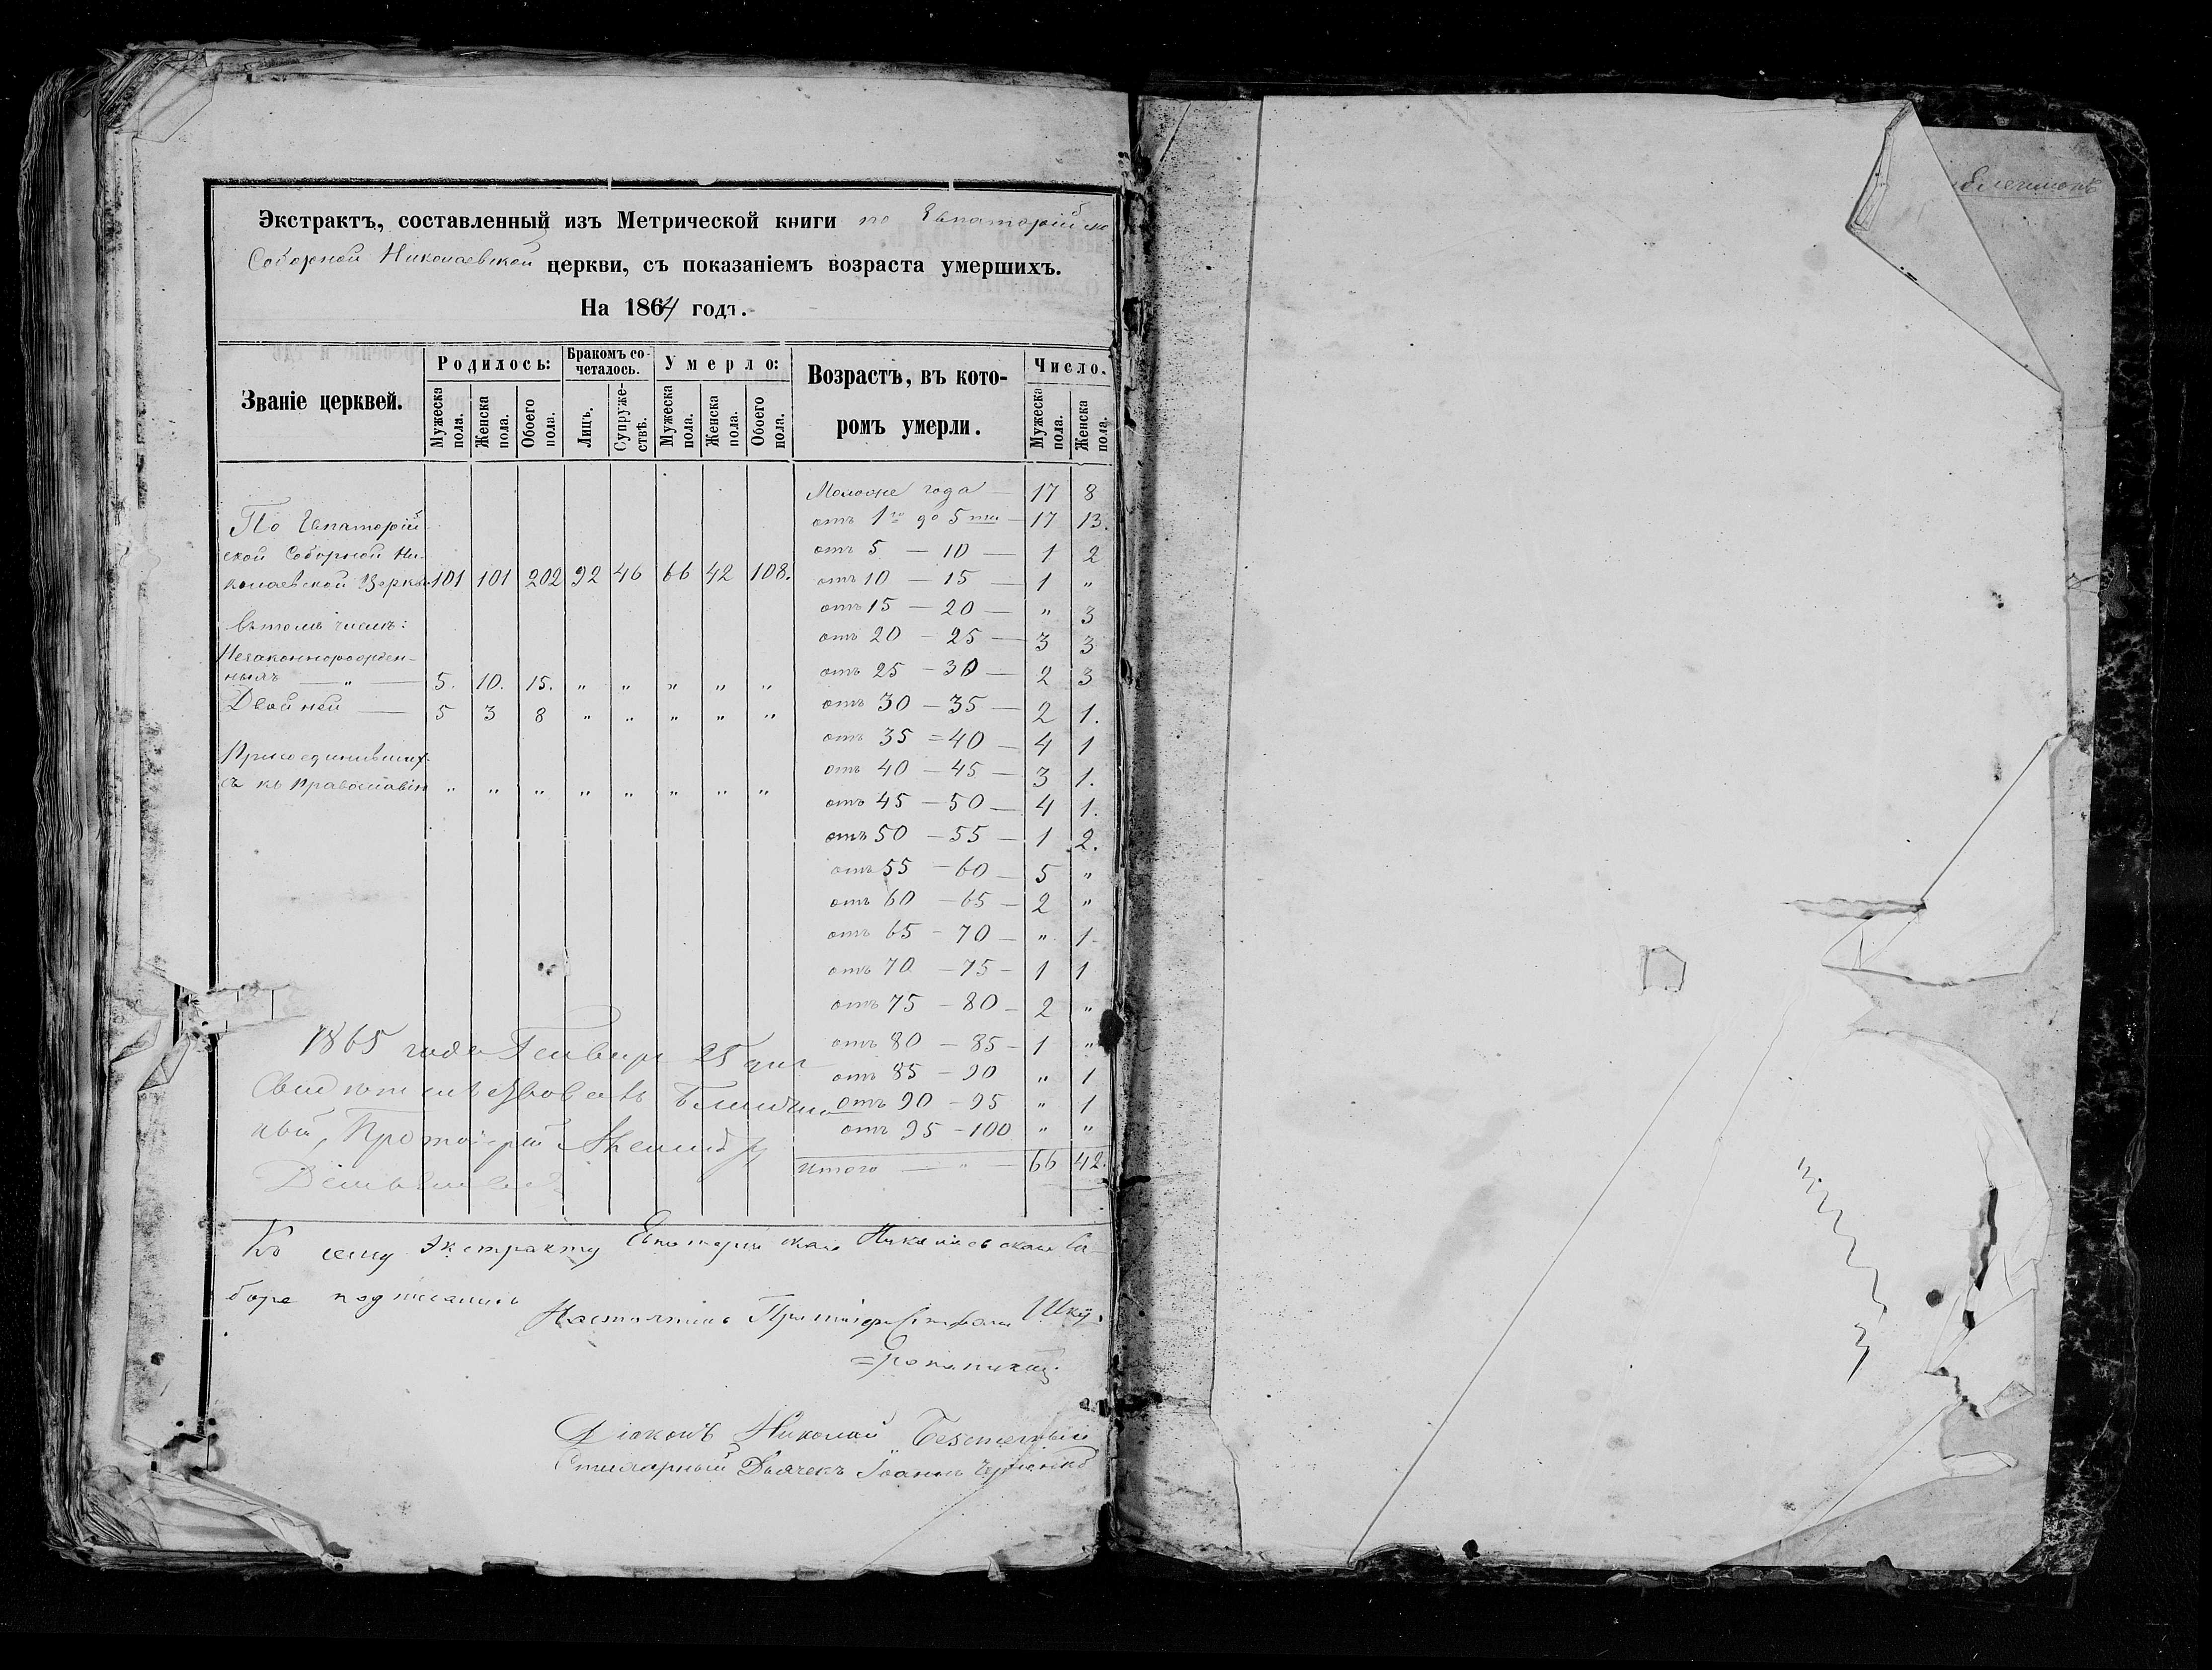 Экстрактъ, составленный изъ Метрической книги по Евпаторійско
Соборной Николаевской церкви, съ показаніемъ возраста умершихъ.
На 1864 годъ.
Званіе церквей.
Родилось:
Бракомъ со-
четалось.
Умерло:
Возрастъ, въ кото-
ромъ умерли.
Число.
Мужеска пола.
Женска пола.
Обоего пола.
Лицъ.
Супруже-
ствъ.
Мужеска пола.
Женска пола.
Обоего пола.
Мужеска пола.
Женска пола.
По Евпаторій-
ской Соборной Ни-
колаевской Церкви 101 101 202 92 46 66 42 108.
въ томъ числѣ:
Незаконнорожден-
ныхъ — „ — 5. 10. 15. „ „ „ „ „
Двойней — 5 3 8 „ „ „ „ „
Присоединивших-
съ къ Православію „ „ „ „ „ „ „ „
Моложе года — 17 8
отъ 1го до 5ти — 17 13.
отъ 5 — 10 — 1 2
отъ 10 — 15 — 1 „
отъ 15 — 20 — „ 3
отъ 20 — 25 — 3 3
отъ 25 — 30 — 2 3
отъ 30 — 35 — 2 1.
отъ 35 = 40 — 4 1
отъ 40 — 45 — 3 1.
отъ 45 — 50 — 4 1.
отъ 50 — 55 — 1 2.
отъ 55 — 60 — 5 „
отъ 60 — 65 — 2 „
отъ 65 — 70 — „ 1
отъ 70 — 75 — 1 1
отъ 75 — 80 — 2 „
отъ 80 — 85 — 1 „
отъ 85 — 90 „ 1
отъ 90 — 95 „ 1
отъ 95 — 100 „ „
Итого — „ — 66 42.
1865 года Генваря 25 дня
Свидѣтельствовалъ Благочин
ный, Протоіерей
Къ сему Экстракту Евпаторійскаго Николаевскаго Со-
бора подписались
Настоятель Протоіерей Стефанъ
Діаконъ Николай
Дьячекъ Іоаннъ